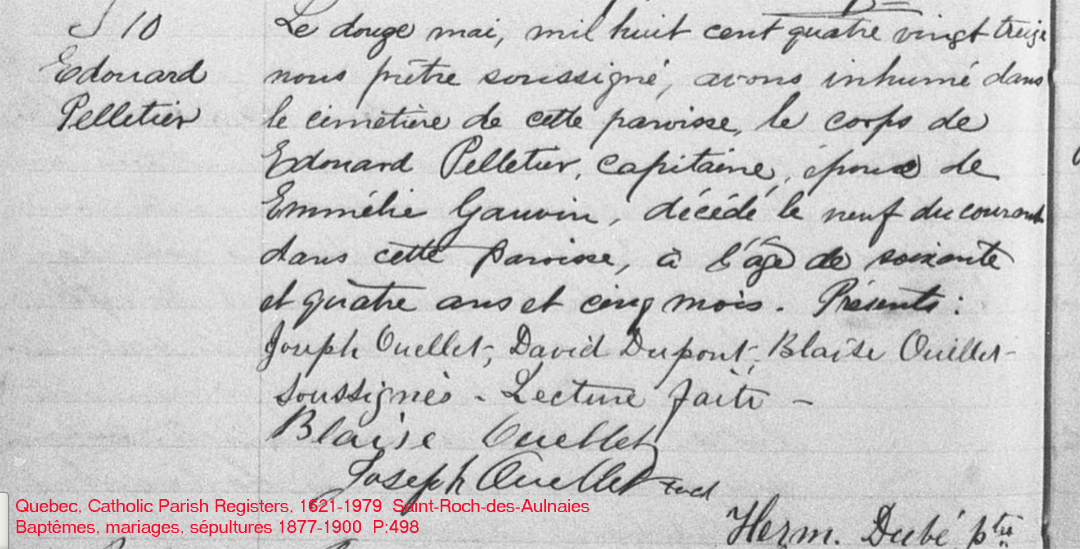 S 10
Edouard
Pelletier
Le douze mai, mil huit cent quatre vingt treize
nous prêtre soussigné, avons inhumé dans
le cimetière de cette paroisse, le corps de
Edouard Pelletier, capitaine, époux de
Emmélie Gauvin, décédé le neuf du courant
dans cette paroisse, à l'âge de soixante
et quatre ans et cinq mois. Présents:
Joseph Ouellet, David Dupont, Blaise Ouellet
soussignés - Lecture faite -
Blaise Ouellet
Joseph Ouellet
Herm. Dubé ptre
Quebec, Catholic Parish Registers, 1621-1979 Saint-Roch-des-Aulnaies
Baptêmes, mariages, sépultures 1877-1900 P:498